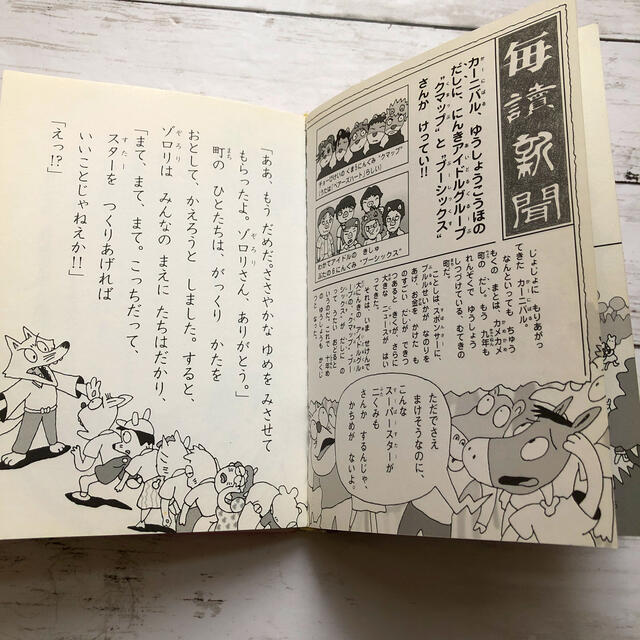 毎讀新聞
カーニバル、ゆうしょうこうほの
だしに、にんきアイドルグループ
"クマップ"と"ブーシックス"
さんか けってい!!
わかてアイドルの きしゅ
ぶたの6にんぐみ"ブーシックス"
じょじょに もりあがっ
てきた カーニバル。
なんといっても ちゅう
もくの まとは、カメカメ
町の だし。もう 九年も
れんぞくで ゆうしょう
しつづけている、むてきの
町だ。
ことしは、スポンサーに、
ブルルせいかが なのりを
あげ、お金を かけた も
のすごい だしが できつ
つあると きくが、さらに
大きな ニュースが はい
ってきた。
ただでさえ
まけそうなのに、
こんな
スーパースターが
二くみも
さんかするんじゃ、
かちめが ないよ。
「ああ、もう だめだ。ささやかな ゆめを みさせて
もらったよ。ゾロリさん、ありがとう。」
町の ひとたちは、がっくり かたを
おとして、かえろうと しました。すると、
ゾロリは みんなの まえに たちはだかり、
「まて、まて、まて。こっちだって、
スターを つくりあげれば
いいことじゃねえか!!」
「えっ!?」